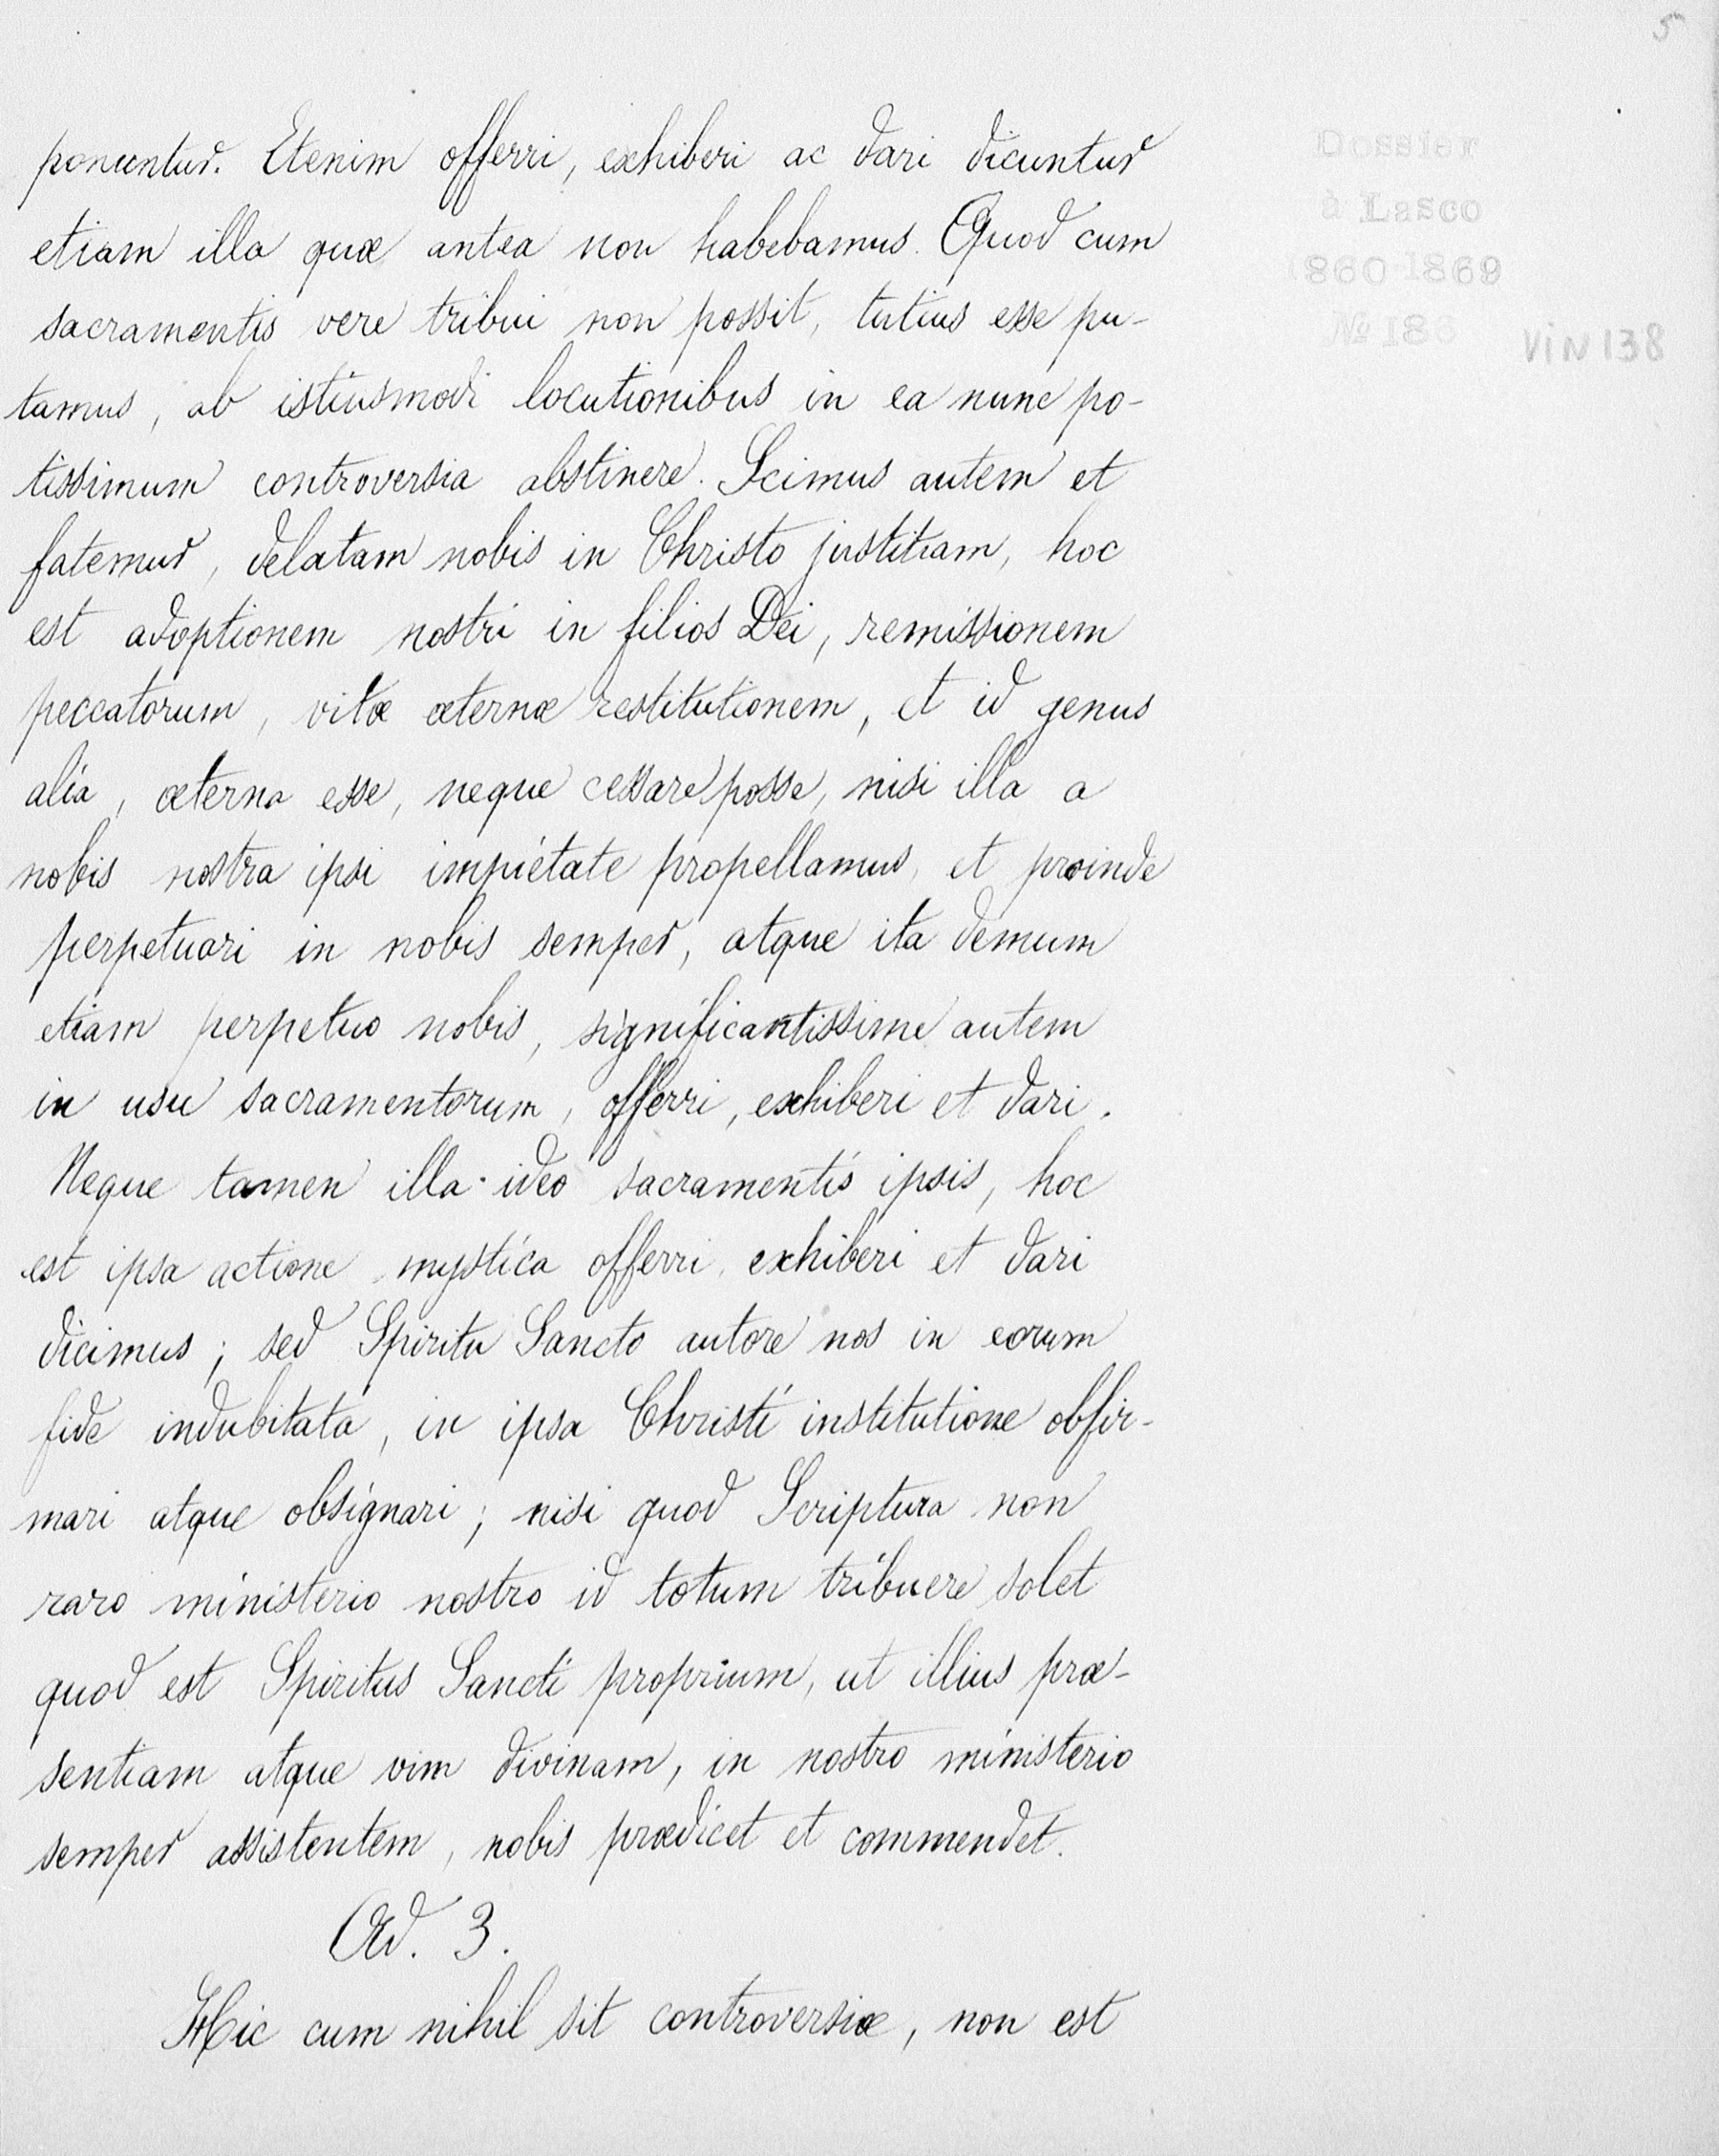 5
Dossier
à Lasco
1860-1869
№ 18
ViN 138
ponuntur. Etenim offerri, exhiberi ac dari dicuntur
etiam illa quæ antea non habebamus. Quod cum
sacramentis vere tribui non possit, tutius esse pu-
tamus, ab istiusmodi locutionibus in ea nunc po-
tissimum controversia abstinere. Scimus autem et
fatemur, delatam nobis in Christo justitiam, hoc
est adoptionem nostri in filios Dei, remissionem
peccatorum, vitæ æternæ restitutionem, et id genus
alia, æterna esse, neque cessare posse, nisi illa a
nobis nostra ipsi impietate propellamus, et proinde
perpetuari in nobis semper, atque ita demum
etiam perpetuo nobis, significantissime autem
in usu sacramentorum, offerri, exhiberi et dari.
Neque tamen illa ideo sacramentis ipsis, hoc
est ipsa actione mystica offerri, exhiberi et dari
dicimus; sed Spiritu Sancto autore nos in eorum
fide indubitata, in ipsa Christi institutione obfir-
mari atque obsignari; nisi quod Scriptura non
raro ministerio nostro id totum tribuere solet
quod est Spiritus Sancti proprium, ut illius præ-
sentiam atque vim divinam, in nostro ministerio
semper assistentem, nobis prædicet et commendet.
Ad. 3.
Hic cum nihil sit controversiæ, non est